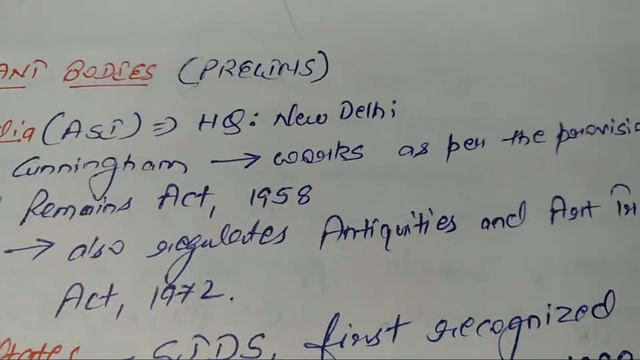 ANT BODIES (PRELIMS)
dia (ASI) => HQ: New Delhi
Cunningham → works as per the provisio
Remains Act, 1958
→ also regulates Antiquities and Art
Act, 1972.
States - SIDS, first recognized